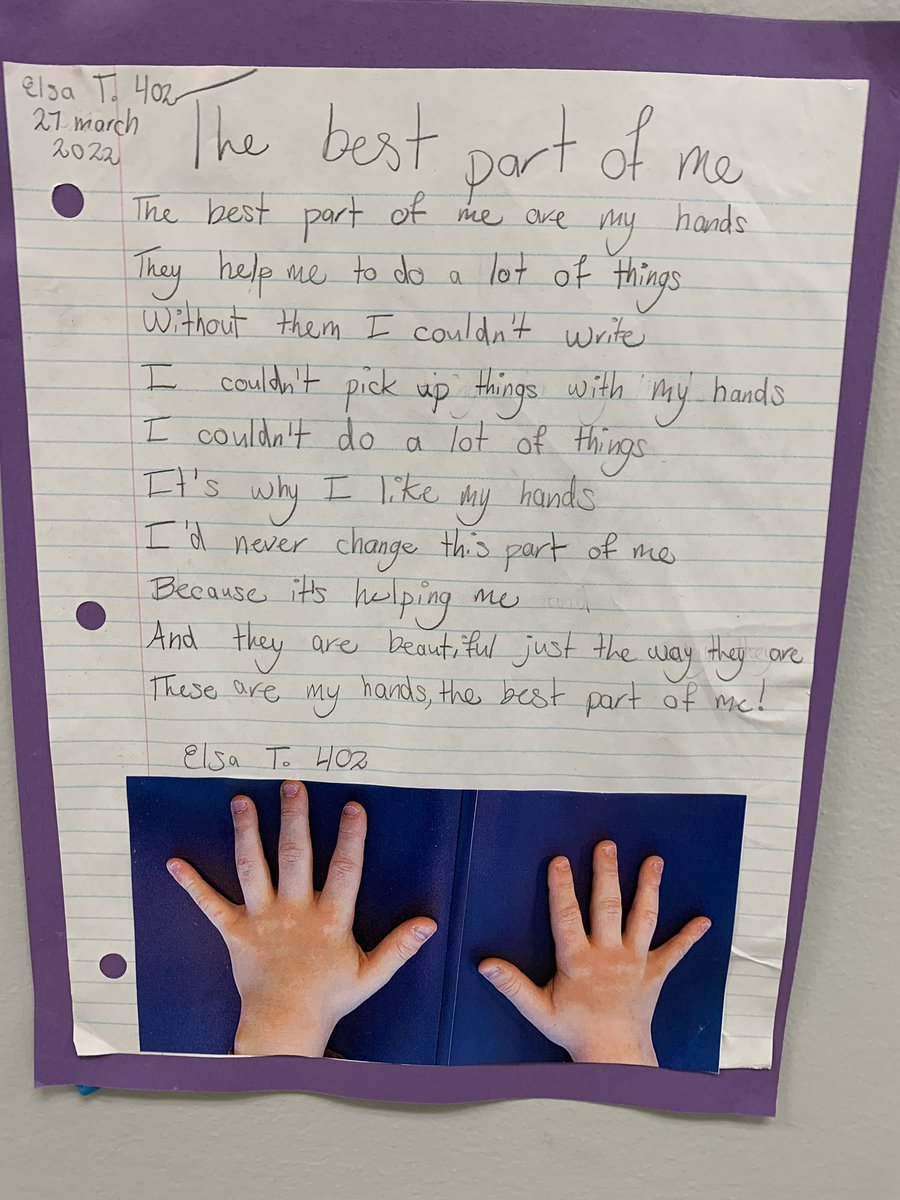 Elsa T. 402
27 march
2022
The best part of me
The best part of me are my hands
They help me to do a lot of things
Without them I couldn't write
I couldn't pick up things with my hands
I couldn't do a lot of things
It's why I like my hands
I'd never change this part of me
Because it's helping me
And they are beautiful just the way they are
These are my hands, the best part of me!
Elsa T. 402